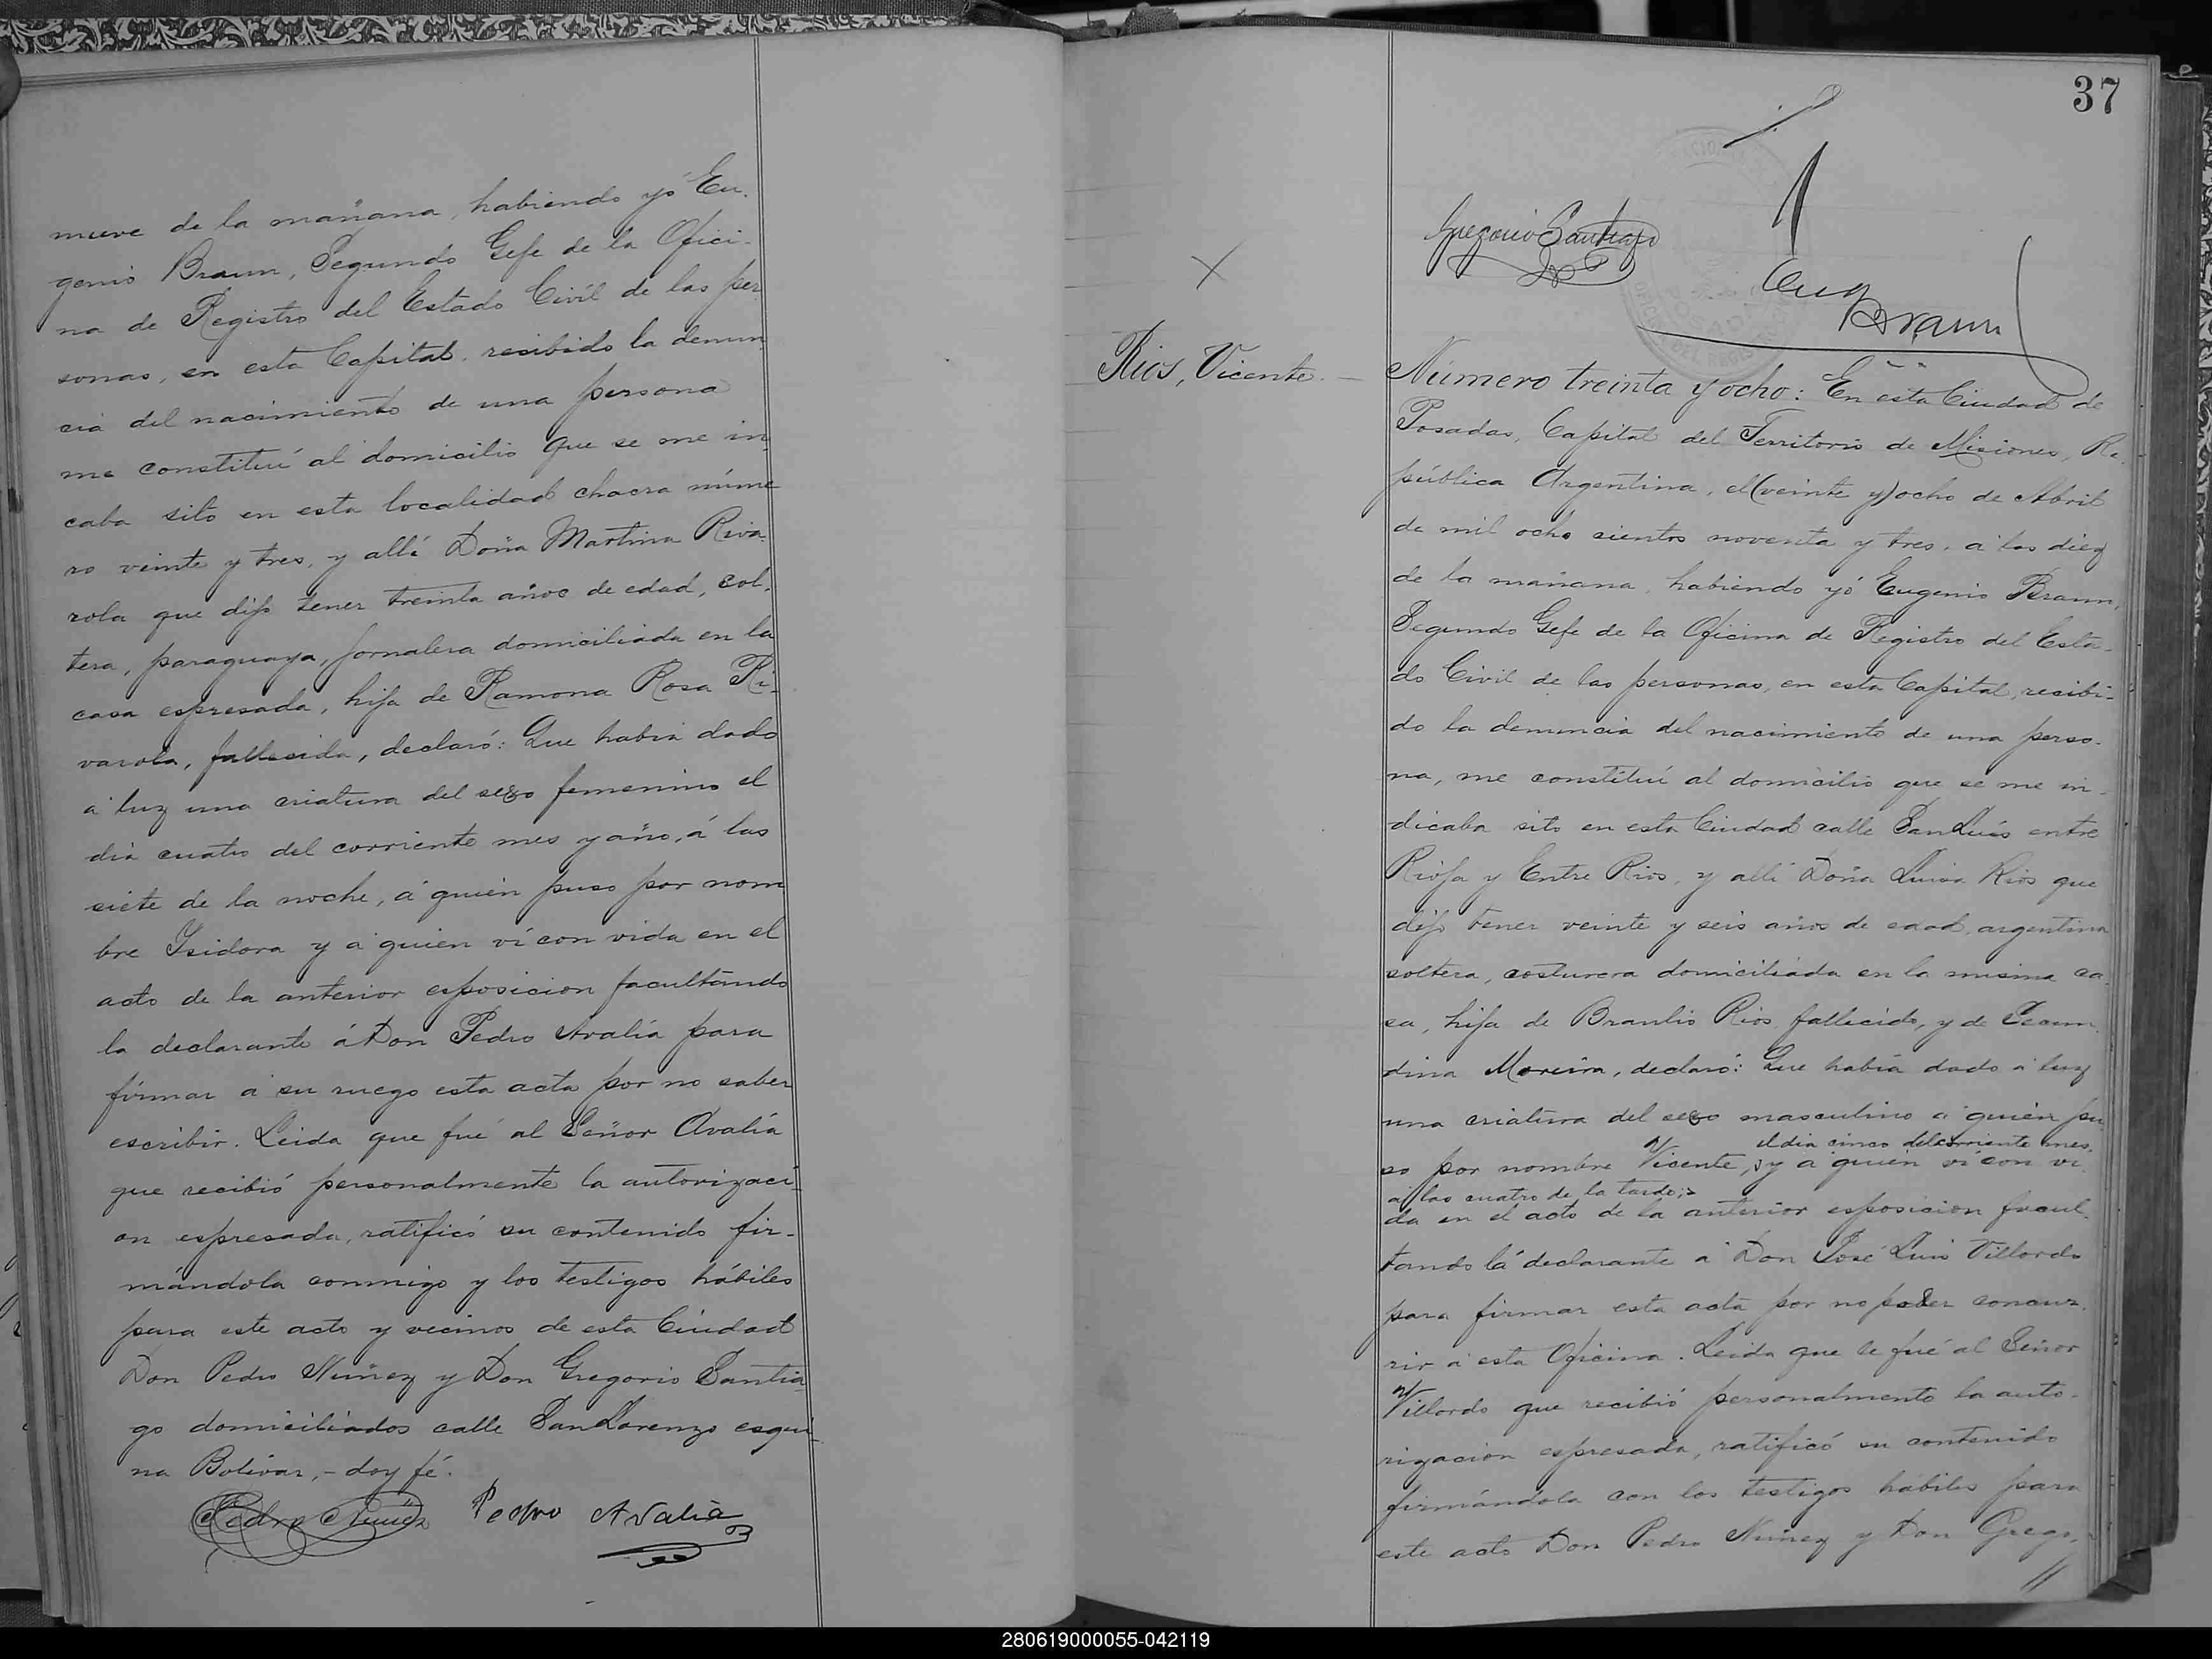 nueve de la mañana, habiendo yó Eu-
genio Braun, Segundo Gefe de la Ofici-
na de Registro del Estado Civíl de las per
sonas, en esta Capital, recibido la denun
cia del nacimiento de una persona
me constituí al domicilio que se me in
caba sito en esta localidad chacra núme
ro veinte y tres, y allí Doña Martina Riva
rola que dijo tener treinta años de edad, sol-
tera, paraguaya, jornalera domiciliada en la
casa espresada, hija de Ramona Rosa Ri-
varola, fallesida, declaró: Que habia dado
á luz una criatura del sexo femenino el
dia cuatro del corriente mes y año, á las
siete de la noche, á quien puso por nom
bre Isidora y á quien ví con vida en el
acto de la anterior esposicion facultando
la declarante á Don Pedro Avalía para
firmar á su ruego esta acta por no saber
escribir. Leida que fué al Señor Avalía
que recibió personalmente la autorizaci-
on espresada, ratificó su contenido fir-
mándola conmigo y los testigos hábiles
para este acto y vecinos de esta Ciudad
Don Pedro Nuñez y Don Gregorio Santia
go domiciliados calle San Lorenzo esqui-
na Bolivar, - doy fé.
Pedro Nuñez Pedro Avalía
37
Gregorio Santiago
Eug Braun
Rios, Vicente. -
Número treinta y ocho: En esta Ciudad de
Posadas, Capital del Territorio de Misiones, Re-
pública Argentina, el (veinte y) ocho de Abril
de mil ocho sientos noventa y tres, á las diez
de la mañana, habiendo yó Eugenio Braun,
Segundo Gefe de la Oficina de Registro del Esta-
do Civil de las personas, en esta Capital, recibi-
do la denuncia del nacimiento de una perso-
na, me constituí al domicilio que se me in-
dicaba sito en esta Ciudad calle San Luis entre
Rioja y Entre Rios, y allí Doña Luisa Rios que
dijo tener veinte y seis años de edad, argentina
soltera, costurera domiciliada en la misma ca-
sa, hija de Braulio Rios fallecido, y de Secun-
dina Moreira, declaró: Que habia dado á luz
una criatura del sexo masculino á quien pu
el dia cinco del corriente mes
so por nombre Vicente, y á quien ví con vi-
á las cuatro de la tarde;
da en el acto de la anterior esposicion facul-
tando la declarante á Don José Luis Villordo
para firmar esta acta por no poder concur-
rir á esta Oficina. Leida que le fué al Señor
Villordo que recibió personalmente la auto-
rizacion espresada, ratificó su contenido
firmándola con los testigos habiles para
este acto Don Pedro Nuñez y Don Grego-
280619000055-042119